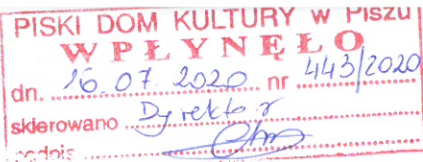 PISKI DOM KULTURY w Piszu
WPŁYNĘŁO
dn. 16.07.2020 nr 443/2020
skierowano Dyrektor
podpis